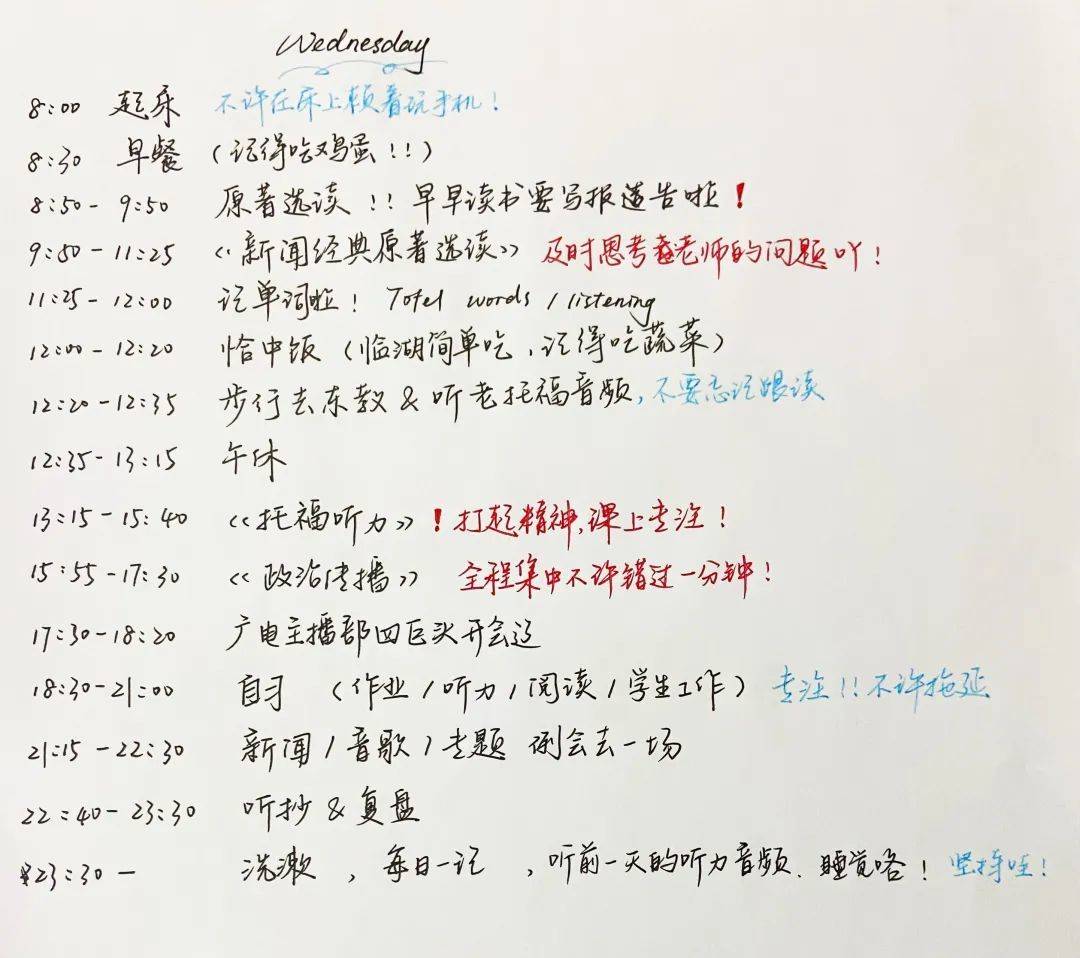 Wednesday
8:00 起床 不许在床上赖着玩手机！
8:30 早餐 （记得吃鸡蛋！！）
8:50 - 9:50 原著选读！！早早读书要写报道告啦！
9:50 - 11:25 《新闻经典原著选读》 及时思考老师的问题吖！
11:25 - 12:00 记单词啦！ Tofel words / listening
12:00 - 12:20 恰中饭（临湖简单吃，记得吃蔬菜）
12:20 - 12:35 步行去东教 & 听老托福音频，不要忘记跟读
12:35 - 13:15 午休
13:15 - 15:40 《托福听力》！打起精神，课上专注！
15:55 - 17:30 《政治传播》 全程集中不许错过一分钟！
17:30 - 18:20 广电主播部四巨头开会辽
18:30 - 21:00 自习 （作业 / 听力 / 阅读 / 学生工作） 专注！！不许拖延
21:15 - 22:30 新闻 / 音歌 / 专题 例会去一场
22:40 - 23:30 听抄 & 复盘
23:30 - 洗漱 ，每日一记 ，听前一天的听力音频．睡觉咯！ 坚持哇！